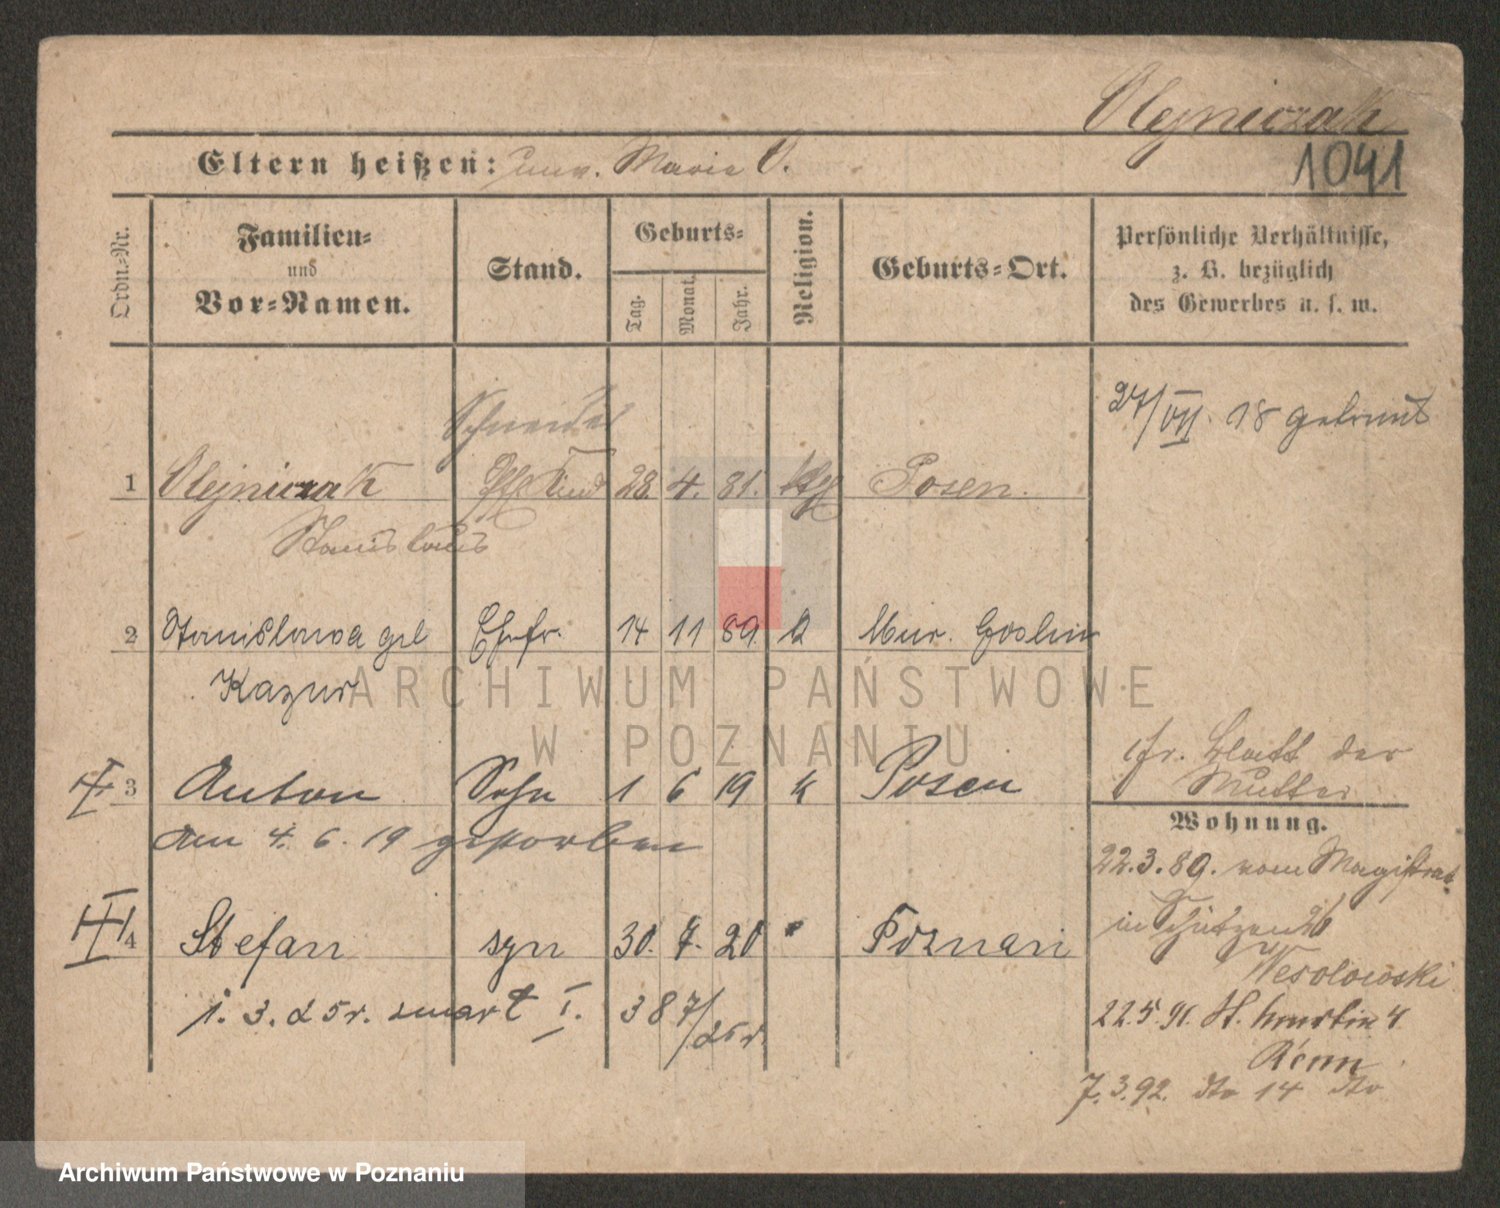 Olejniczak
1041
Eltern heißen: unv. Marie O.
Ordn.-Nr.
Familien-
und
Vor-Namen.
Stand.
Geburts-
Tag.
Monat.
Jahr.
Religion.
Geburts-Ort.
Persönliche Verhältnisse,
z. B. bezüglich
des Gewerbes u. s. w.
27/VII 18 getraut
Schneider
1 Olejniczak 28. 4. 81. kth Posen.
Stanislaus
2 Stanislawa geb Ehefr. 14 11 89 k Mur. Goslin
Kazur
ARCHIWUM PAŃSTWOWE
W POZNANIU
cfr. Blatt der
Mutter
3 Anton Sohn 1 6 19 k Posen
am 4. 6. 19 gestorben
Wohnung.
22.3.89. vom Magistrat
in Schützen 26
Wesolowski
4 Stefan syn 30. 7. 20 " Poznań
1. 3. 25 r. zmarł I. 387/25 r.
22.5.91. St. Martin 4
7.3.92. dto 14 dto
Archiwum Państwowe w Poznaniu